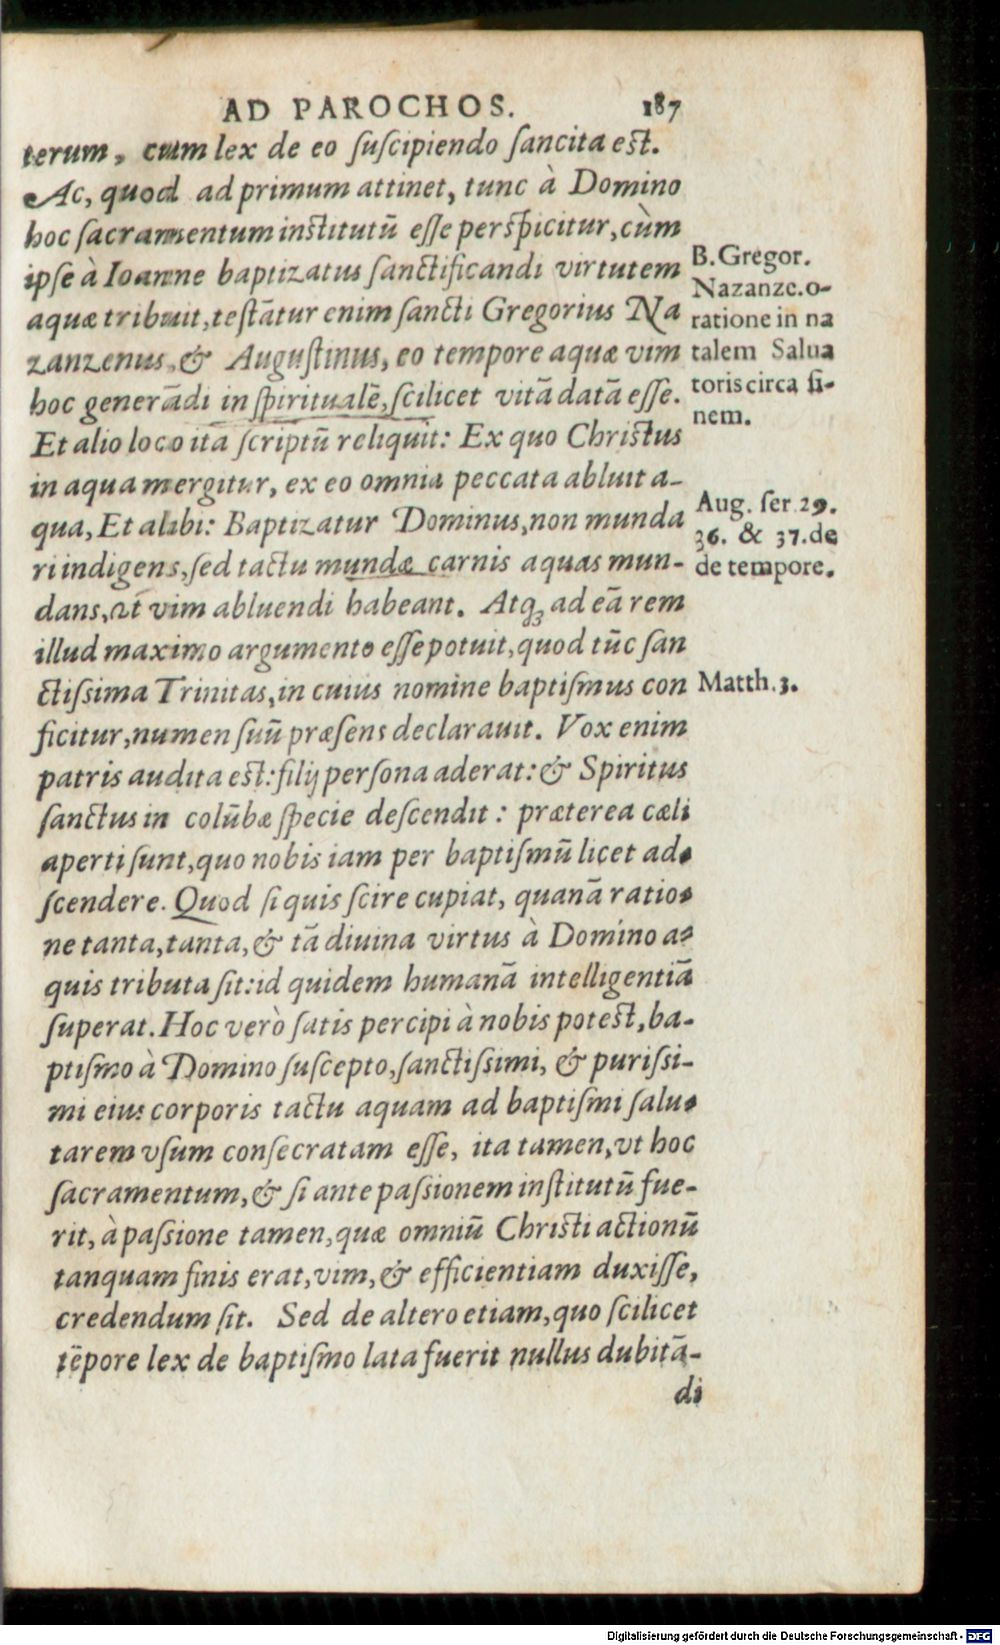 AD PAROCHOS. 187
terum, cum lex de eo ſuſcipiendo ſancita eſt.
Ac, quod ad primum attinet, tunc à Domino
hoc ſacramentum inſtitutū eſſe perſpicitur, cùm
ipſe à Ioanne baptizatus ſanctificandi virtutem
aquæ tribuit, teſtātur enim ſancti Gregorius Na
zanzenus, & Auguſtinus, eo tempore aquæ vim
hoc generādi in ſpiritualē, ſcilicet vitā datā eſſe.
Et alio loco ita ſcriptū reliquit: Ex quo Chriſtus
in aqua mergitur, ex eo omnia peccata abluit a-
qua, Et alibi: Baptizatur Dominus, non munda
ri indigens, ſed tactu mundæ carnis aquas mun-
dans, vt vim abluendi habeant. Atq; ad eā rem
illud maximo argumento eſſe potuit, quod tūc ſan
ctiſsima Trinitas, in cuius nomine baptiſmus con
ficitur, numen ſuū præſens declarauit. Vox enim
patris audita eſt: filij perſona aderat: & Spiritus
ſanctus in colūbæ ſpecie deſcendit: præterea cæli
aperti ſunt, quo nobis iam per baptiſmū licet ad-
ſcendere. Quod ſi quis ſcire cupiat, quanā ratio-
ne tanta, tanta, & tā diuina virtus à Domino a-
quis tributa ſit: id quidem humanā intelligentiā
ſuperat. Hoc verò ſatis percipi à nobis poteſt, ba-
ptiſmo à Domino ſuſcepto, ſanctiſsimi, & puriſsi-
mi eius corporis tactu aquam ad baptiſmi ſalu-
tarem vſum conſecratam eſſe, ita tamen, vt hoc
ſacramentum, & ſi ante paſsionem inſtitutū fue-
rit, à paſsione tamen, quæ omniū Chriſti actionū
tanquam finis erat, vim, & efficientiam duxiſſe,
credendum ſit. Sed de altero etiam, quo ſcilicet
tēpore lex de baptiſmo lata fuerit nullus dubitā-
di
B. Gregor.
Nazanze. o-
ratione in na
talem Salua
toris circa fi-
nem.
Aug. ſer. 29.
36. & 37. de
de tempore.
Matth. 3.
Digitalisierung gefördert durch die Deutsche Forschungsgemeinschaft - DFG